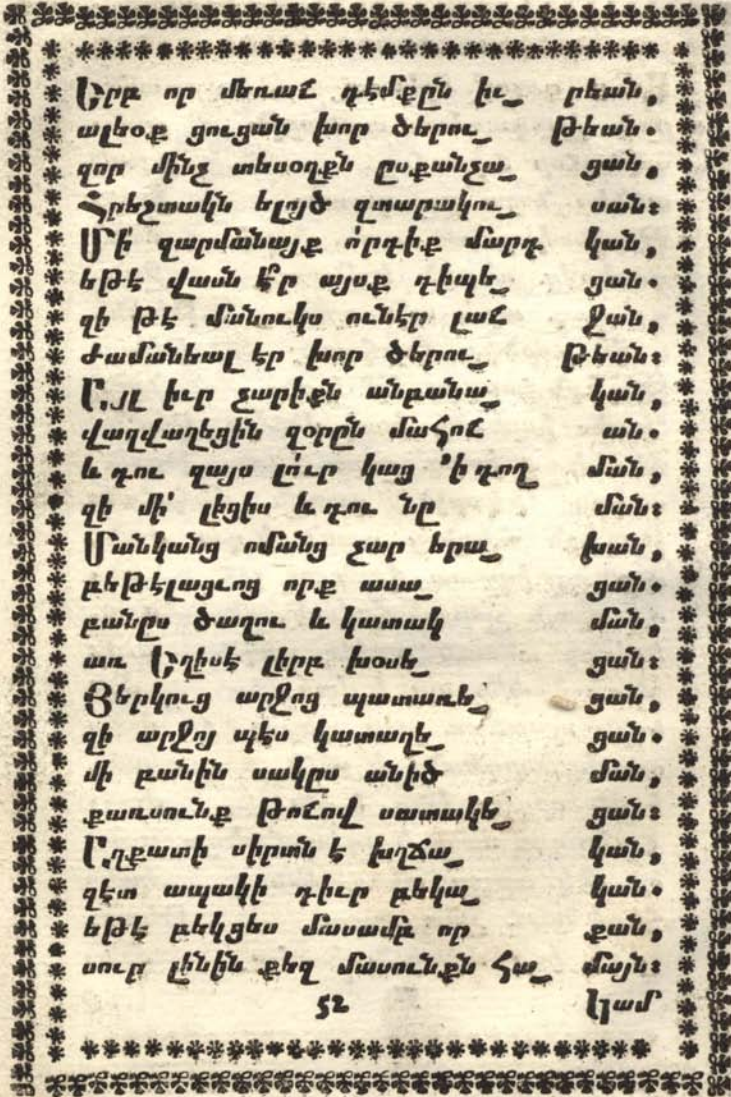 Երբ որ մեռաւ դէմքըն իւ_ րեան,
ալեօք ցուցան խոր ծերու_ թեան.
զոր մինչ տեսօղքն ըսքանչա_ ցան,
Հրեշտակն ելոյծ զտարակու_ սան։
Մի՛ զարմանայք ո՛րդիք մարդ կան,
եթէ վասն է՞ր այսք դիպե_ ցան.
զի թէ մանուկս ունէր լաւ ջան,
ժամանեալ էր խոր ծերու_ թեան։
Այլ իւր չարիքն անբանա_ կան,
վաղվաղեցին զօրըն մահու ան.
և դու զայս լո՛ւր կաց ՚ի դող ման,
զի մի՛ լեցիս և դու նը ման։
Մանկանց ոմանց չար երա_ խան,
բեթէլացւոց որք ասա_ ցան.
բանըս ծաղու և կատակ ման,
առ Եղիսէ լիրբ խօսե_ ցան։
Յերկուց արջոց պատառե_ ցան,
զի արջոյ պէս կատաղե_ ցան.
մի բանին սակըս անիծ ման,
քառսունք թուով սատակե_ ցան։
Աղքատի սիրտն է խղճա_ կան,
զէտ ապակի դիւր բեկա_ կան.
եթէ բեկցես մասամբ որ քան,
սուր լինին քեզ մասունքն հա_ մայն։
52 կամ